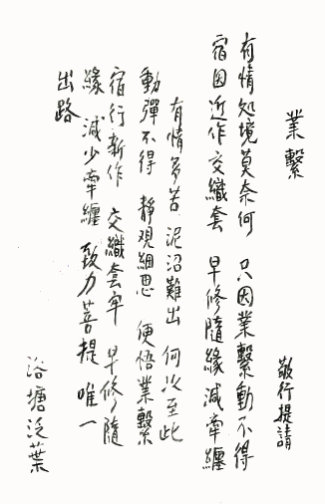 業繫
敬行提請
有情処境莫奈何 只因業繫動不得
宿因近作交織套 早修隨緣減牽纏
有情多苦 泥沼難出 何以至此
動彈不得 靜观細思 便悟業繫
宿行新作 交織套牢 早修隨
緣 減少牽纏 致力菩提 唯一
出路
浴塘泛葉